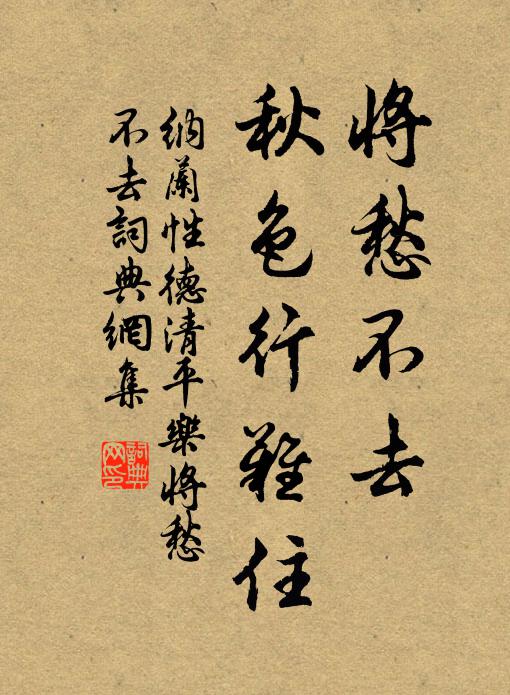 將愁不去
秋色行難住
納蘭性德清平樂將愁
不去詞典網集
詞典
网印